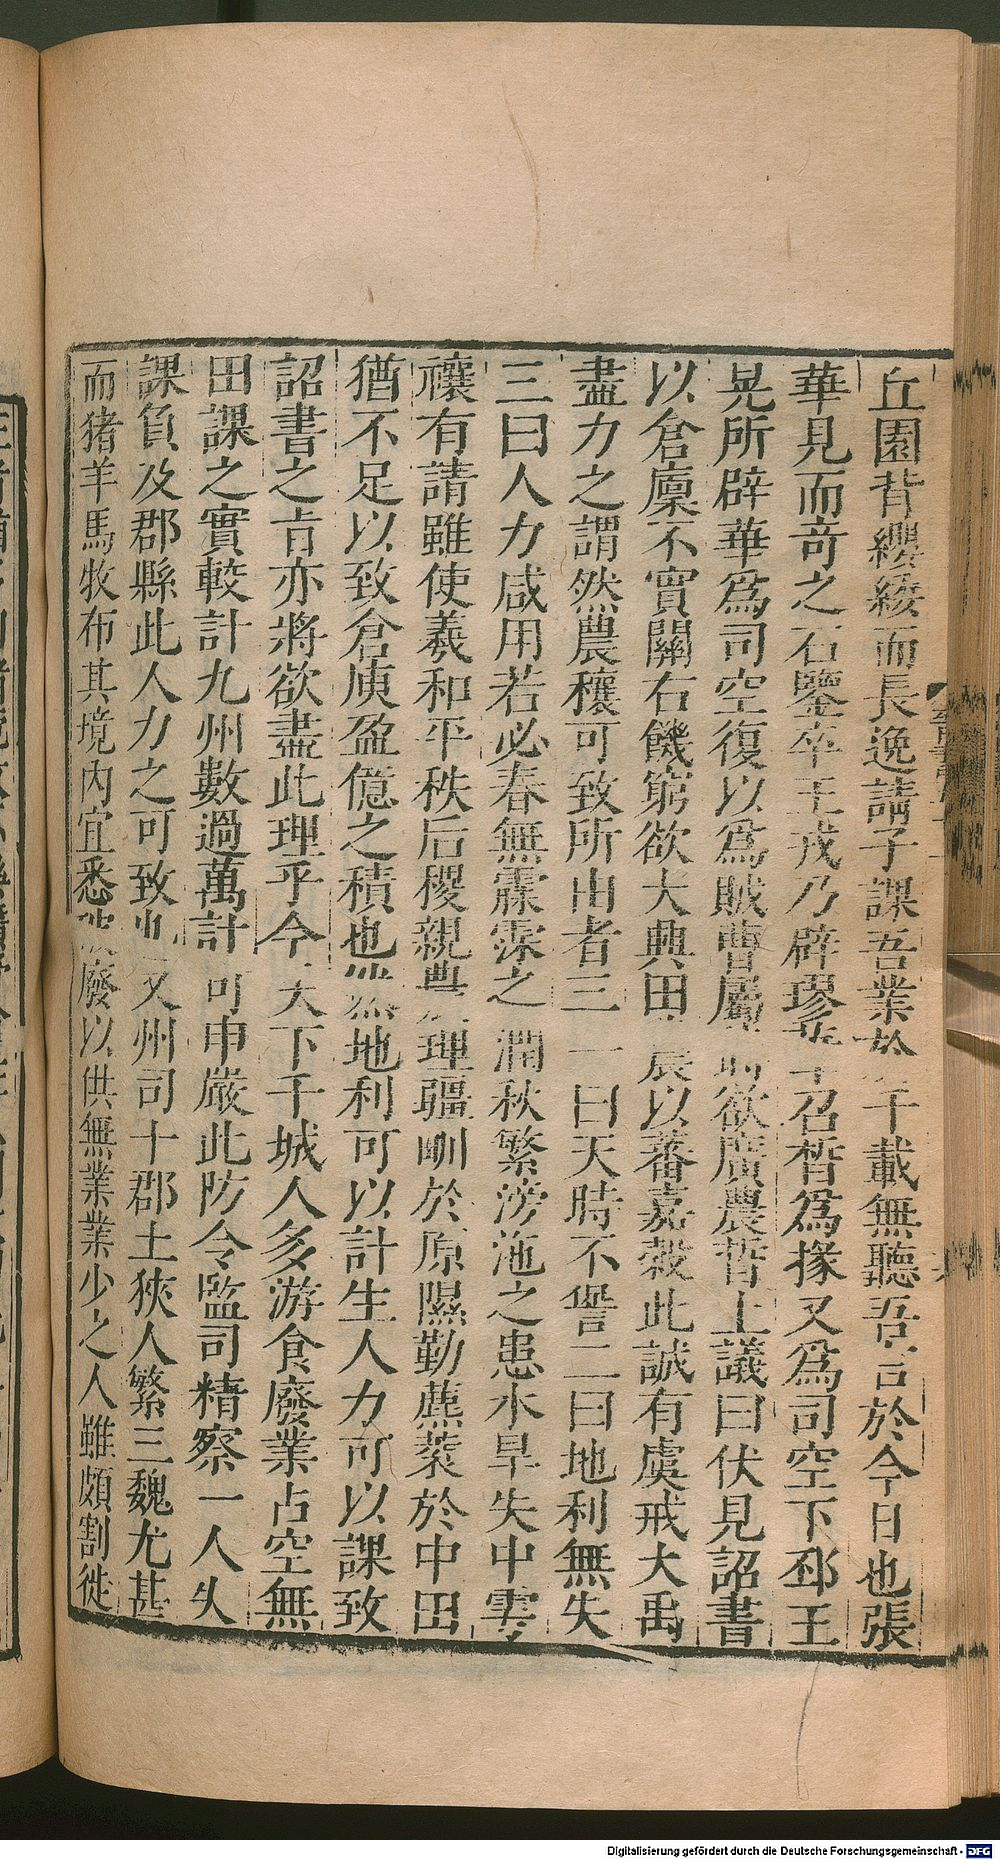 丘園背纓緌而長逸請子課吾業於千載無聽吾言於今日也張
華見而奇之石鑒卒王戎乃辟璆華召晳爲掾又爲司空下邳王
晃所辟華爲司空復以爲賊曹屬時欲廣農晳上議曰伏見詔書
以倉廩不實關右饑窮欲大興田農以蕃嘉穀此誠有虞戒大禹
盡力之謂然農穰可致所由者三一曰天時不諐二曰地利無失
三曰人力咸用若必春無霡霂之潤秋繁滂沲之患水旱失中雩
禳有請雖使羲和平秩后稷親農理疆甽於原隰勤藨蔉於中田
猶不足以致倉庾盈億之積也然地利可以計生人力可以課致
詔書之旨亦將欲盡此理乎今天下千城人多游食廢業占空無
田課之實較計九州數過萬計可申嚴此防令監司精察一人失
課負及郡縣此人力之可致也又州司十郡土狹人繁三魏尤甚
而猪羊馬牧布其境內宜悉破廢以供無業業少之人雖頗割徙
Digitalisierung gefördert durch die Deutsche Forschungsgemeinschaft - DFG